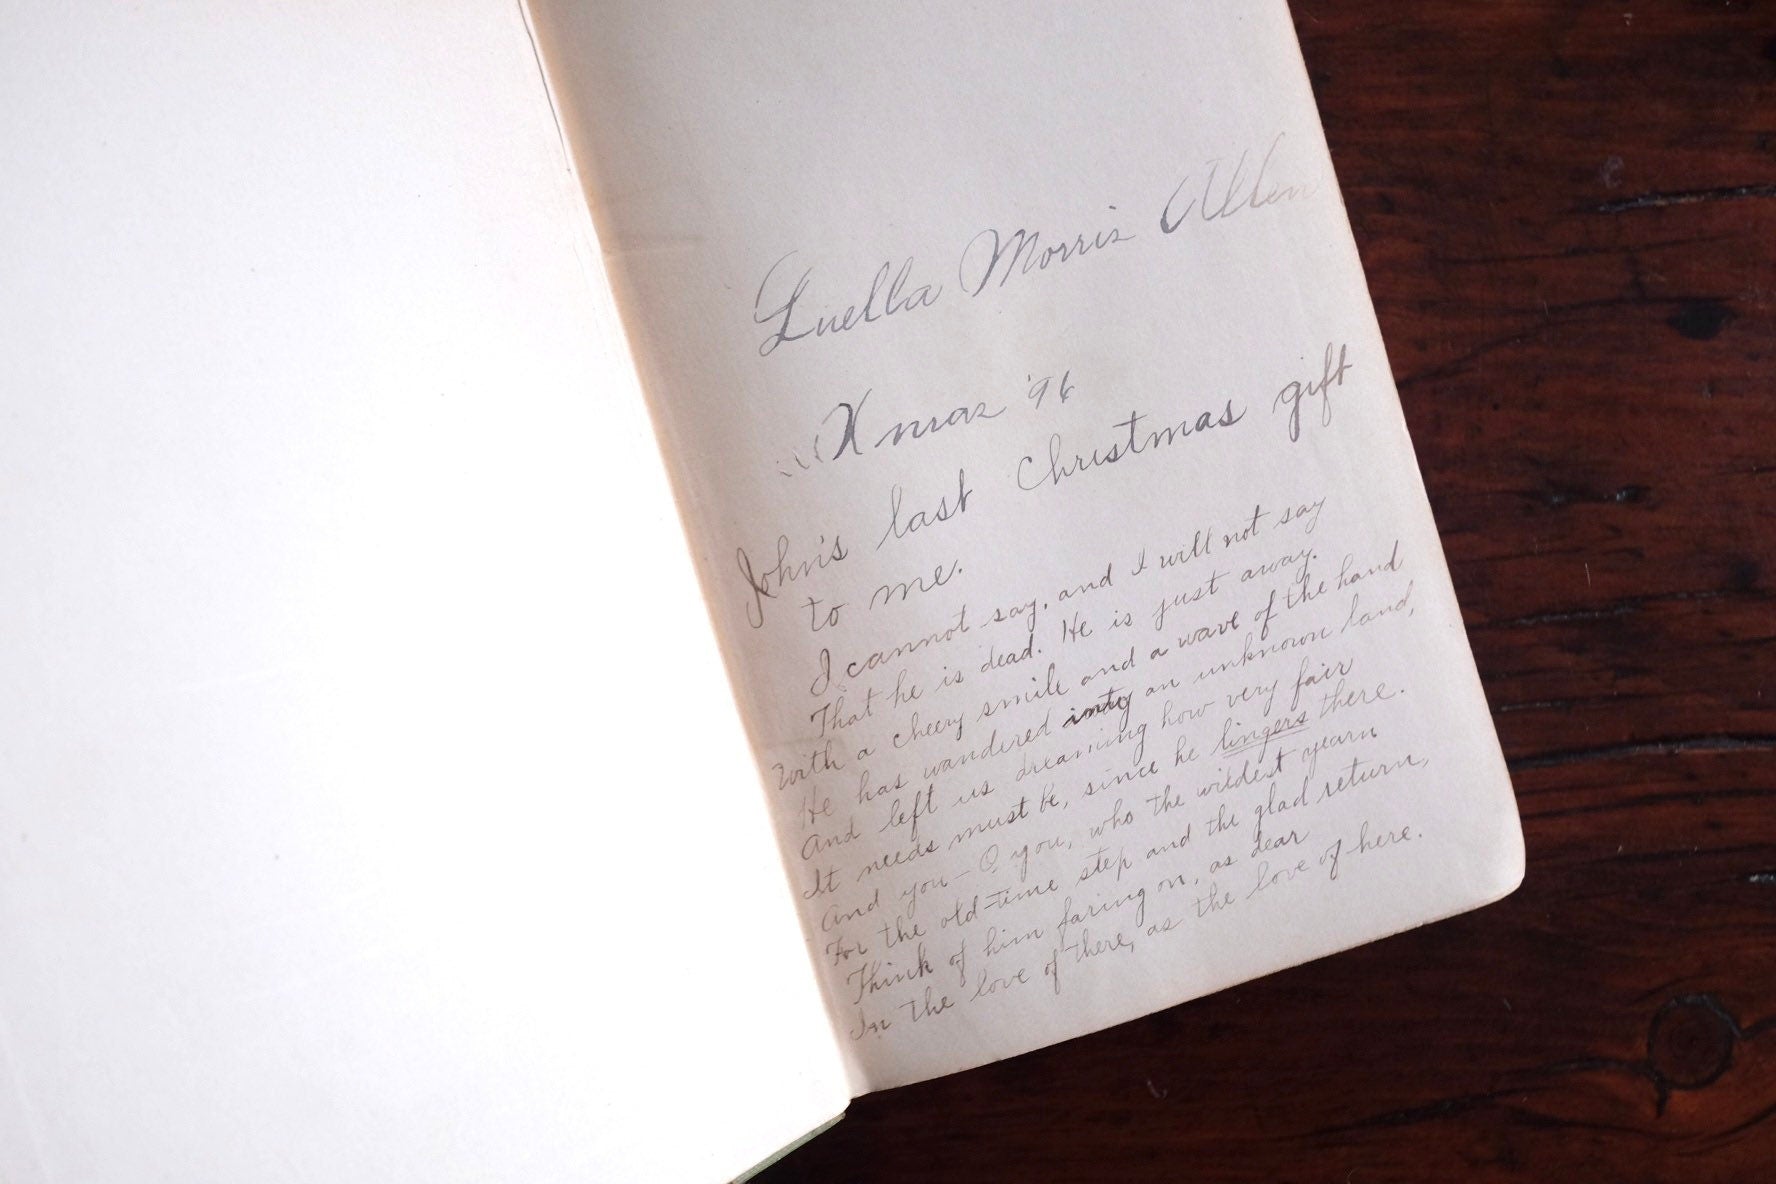 Luella Morris Allen
Xmas '96
John's last Christmas gift
to me.
I cannot say, and I will not say
That he is dead. He is just away.
With a cheery smile and a wave of the hand
He has wandered into an unknown land,
And left us dreaming how very fair
It needs must be, since he lingers there.
And you — O you, who the wildest yearn
For the old-time step and the glad return,
Think of him faring on, as dear
In the love of there, as the love of here.